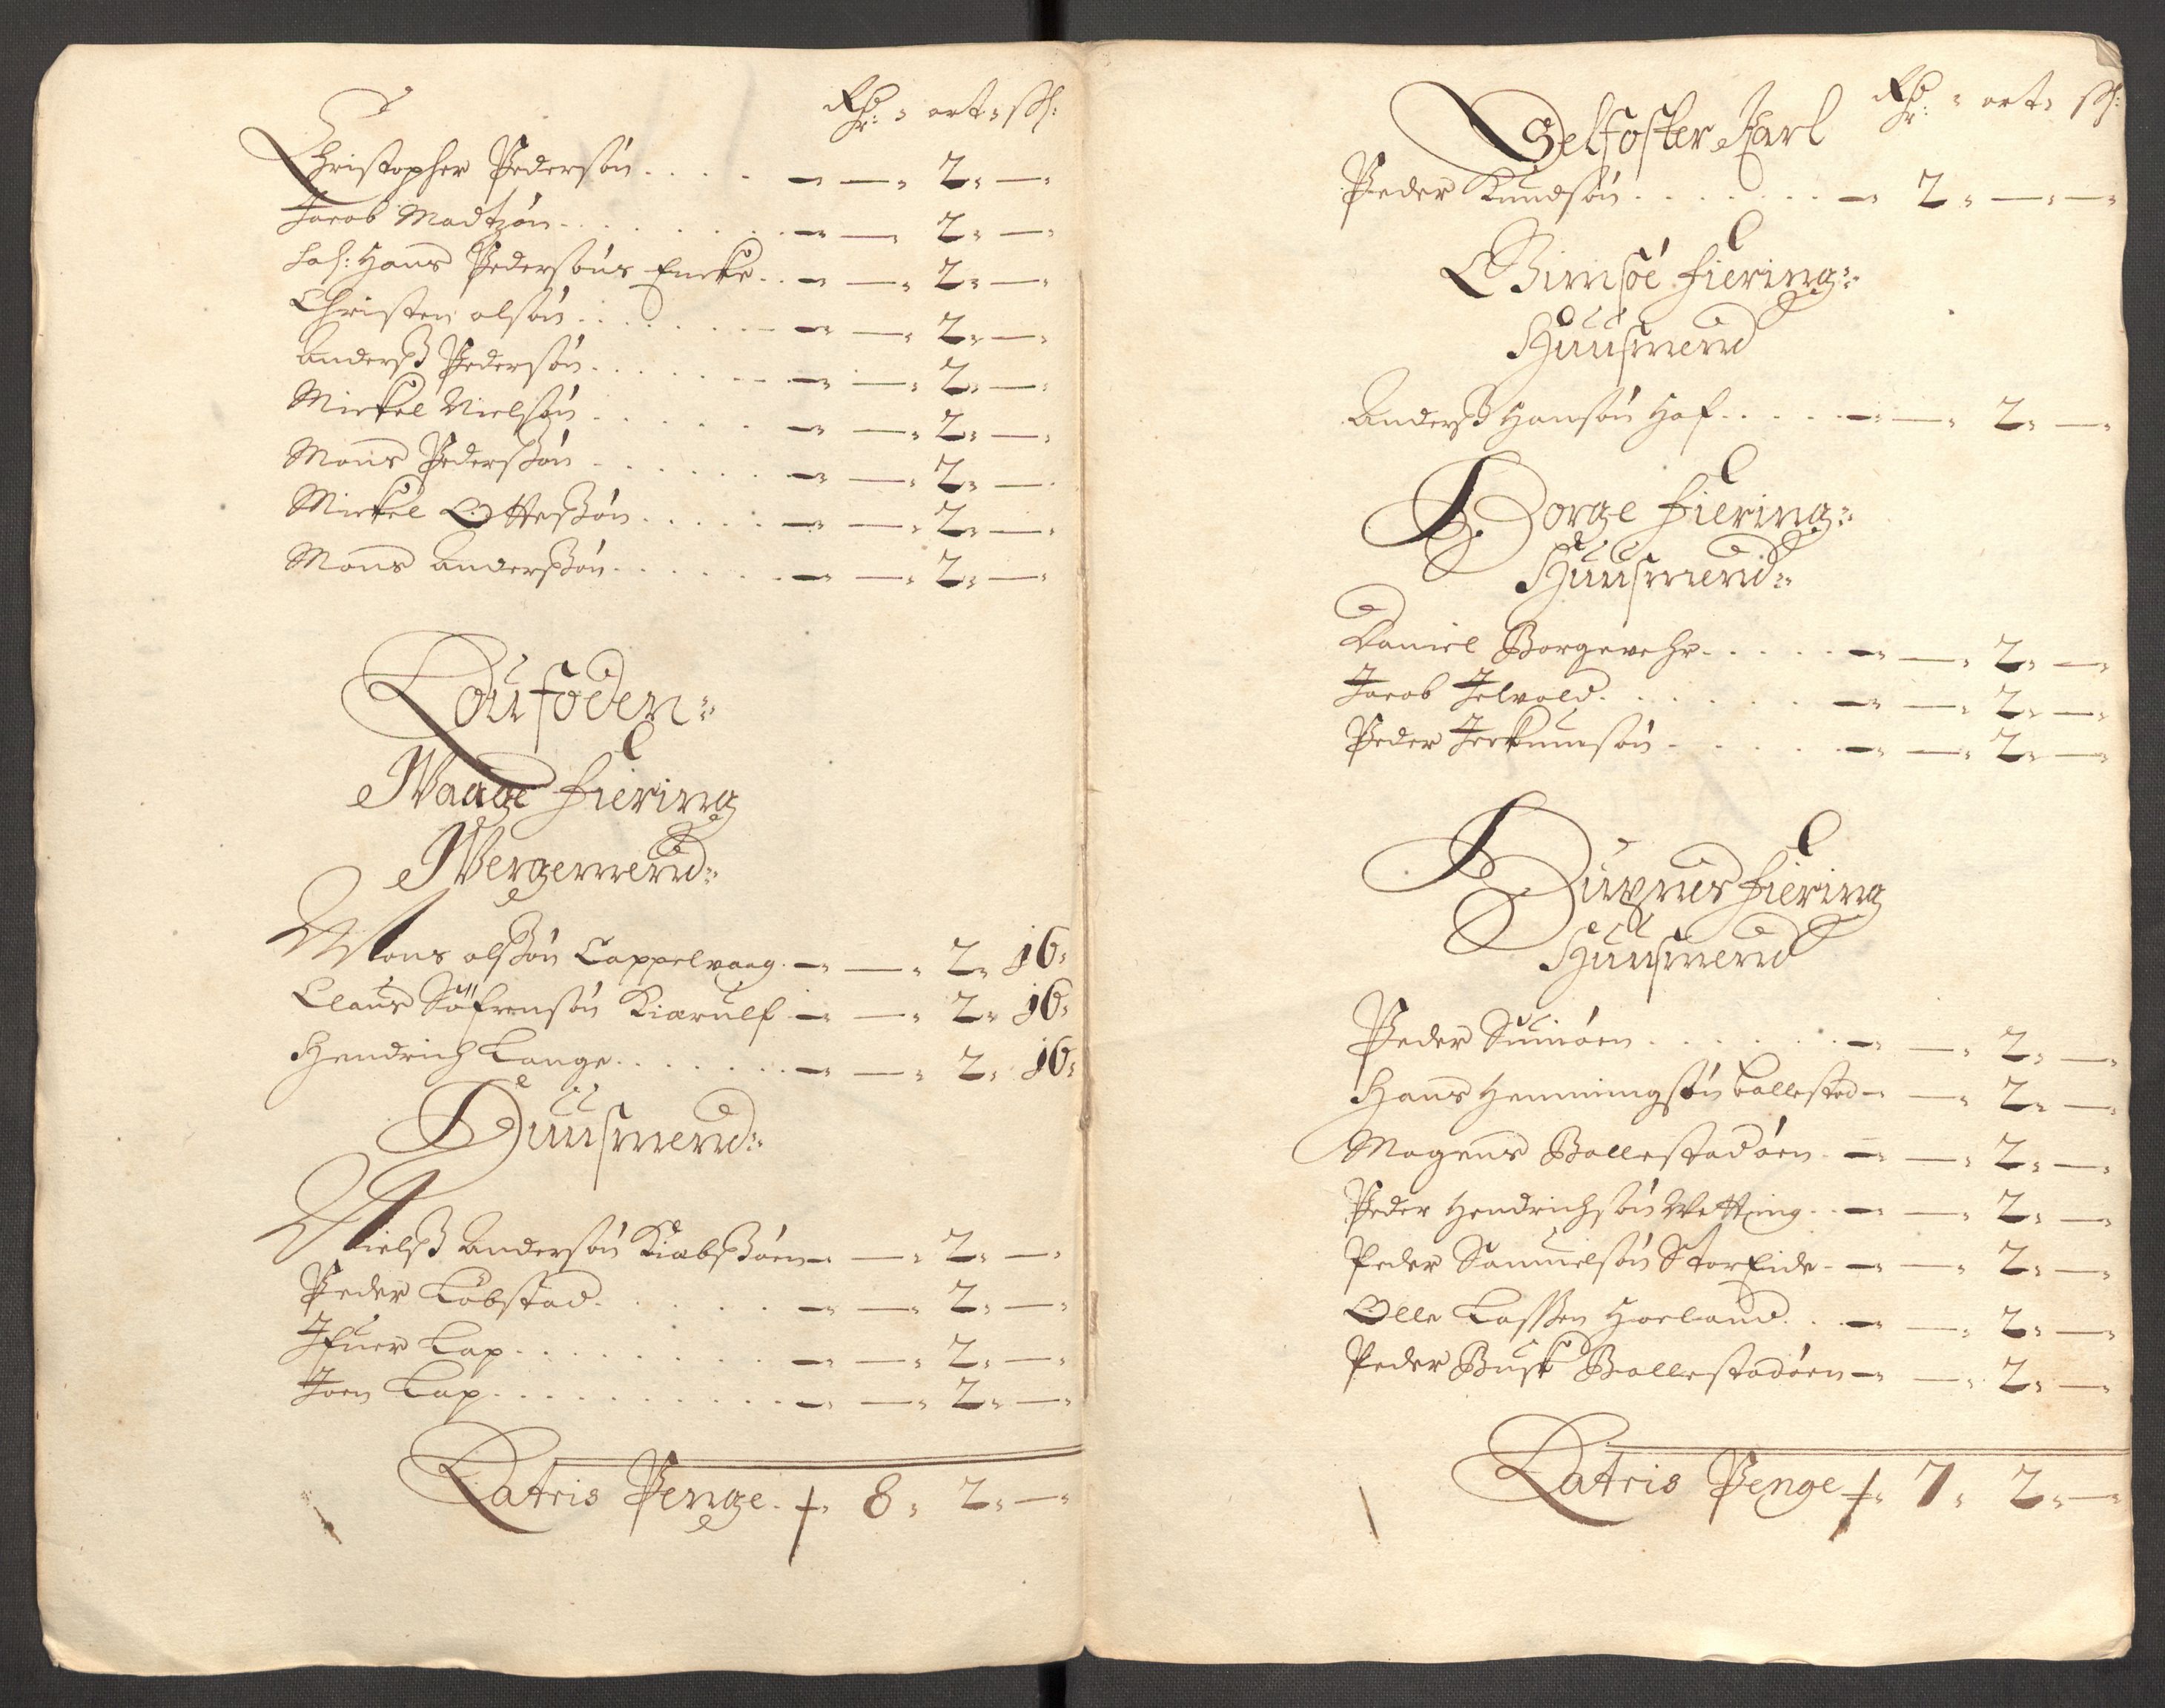 Rdr: ort: sk:
Christopher Pedersøn .... — — 2 —
Jacob Madtzøn ..... — — 2 —
Sal: Hans Pedersøns Encke .. — — 2 —
Christen olsøn ...... — — 2 —
Anderß Pedersøn ...... — — 2 —
Mickel Nielsøn ..... — — 2 —
Mons Pederßøn ...... — — 2 —
Mickel Otteßøn ..... — — 2 —
Mons Anderßøn ...... — — 2 —
Loufoden
Waage fiering
Wergemend
Mons olßøn Cappelvaag — — 2 16
Claus Söfrensøn Kiærulf — — 2 16
Hendrich Lange ...... — — 2 16
Huusmend
Nielß Andersøn Kiabßøen — — 2 —
Peder Löbstad ..... — — 2 —
Ifuer Lap ........ — — 2 —
Joen Lap ......... — — 2 —
Latris Penge 8 2 —
Rdr: ort: sk:
Selfoster Karl
Peder Knudsøn ...... — 2 — —
Gimsöe fiering
Huusmend
Anderß Hansøn Hof .... — — 2 —
Borge fiering
Huusmend
Daniel Borgevehr .... — — 2 —
Jacob Jelvold ...... — — 2 —
Peder Joekumsøn ..... — — 2 —
Buxnes fiering
Huusmend
Peder Sundøen ...... — — 2 —
Hans Hemmingsøn Ballestad — — 2 —
Mogens Ballestadøen — — 2 —
Peder Hendrichsøn Wetting .. — — 2 —
Peder Samuelsøn StorEide — — 2 —
Olle Lasßen Horland .. — — 2 —
Peder Busk Ballestadøen — — 2 —
Latris Penge 7 2 —